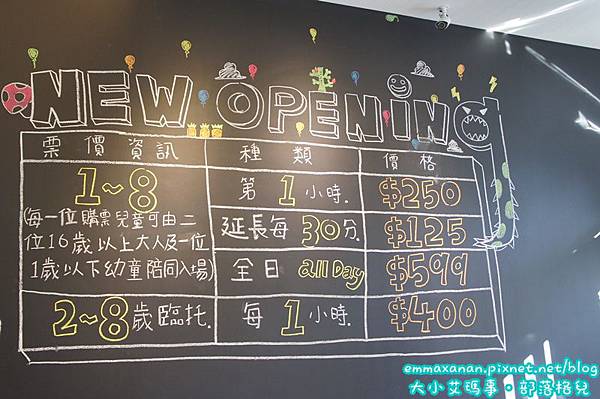 NEW OPENING
票價資訊 種類 價格
1~8 第1小時. $250
(每一位購票兒童可由二
位16歲以上大人及一位
1歲以下幼童陪同入場)
延長每30分. $125
全日 all Day $599
2~8歲臨托. 每1小時. $400
emmaxanan.pixnet.net/blog
大小艾瑪事。部落格兒